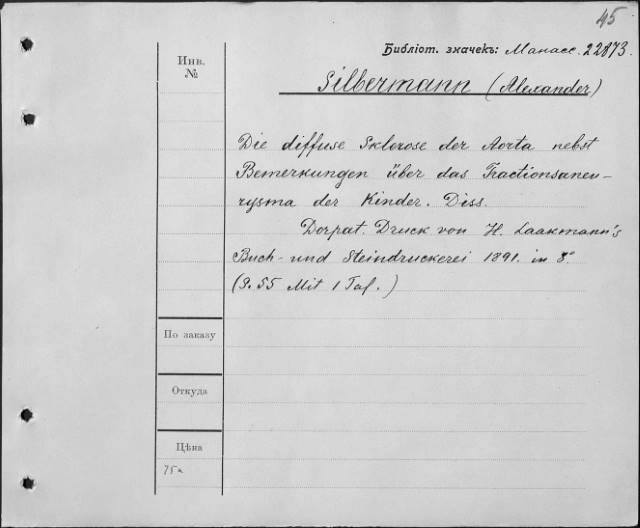 45
Библіот. значекъ: Манасс. 22873.
Инв.
№
Silbermann (Alexander)
Die diffuse Sklerose der Aorta nebst
Bemerkungen über das Tractionsaneu-
rysma der Kinder. Diss.
Dorpat. Druck von H. Laakmann's
Buch- und Steindruckerei 1891. in 8°
(S. 55 Mit 1 Taf.)
По заказу
Откуда
Цѣна
75к